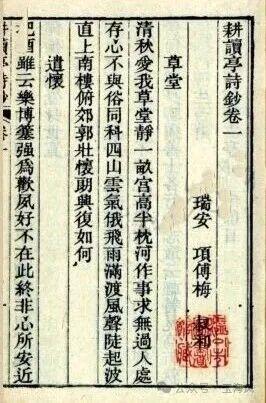 耕讀亭詩鈔卷一
瑞安 項傅梅 叔和
草堂
清秋愛我草堂靜一畝宮高半枕河作事求無過人處
存心不與俗同科四山雲氣俄飛雨滿渡風聲陡起波
直上南樓俯郊郭壯懷朗興復如何
遣懷
把酒雖云樂博簺强為歡夙好不在此終非心所安近
耕讀亭詩鈔 卷一
公众号